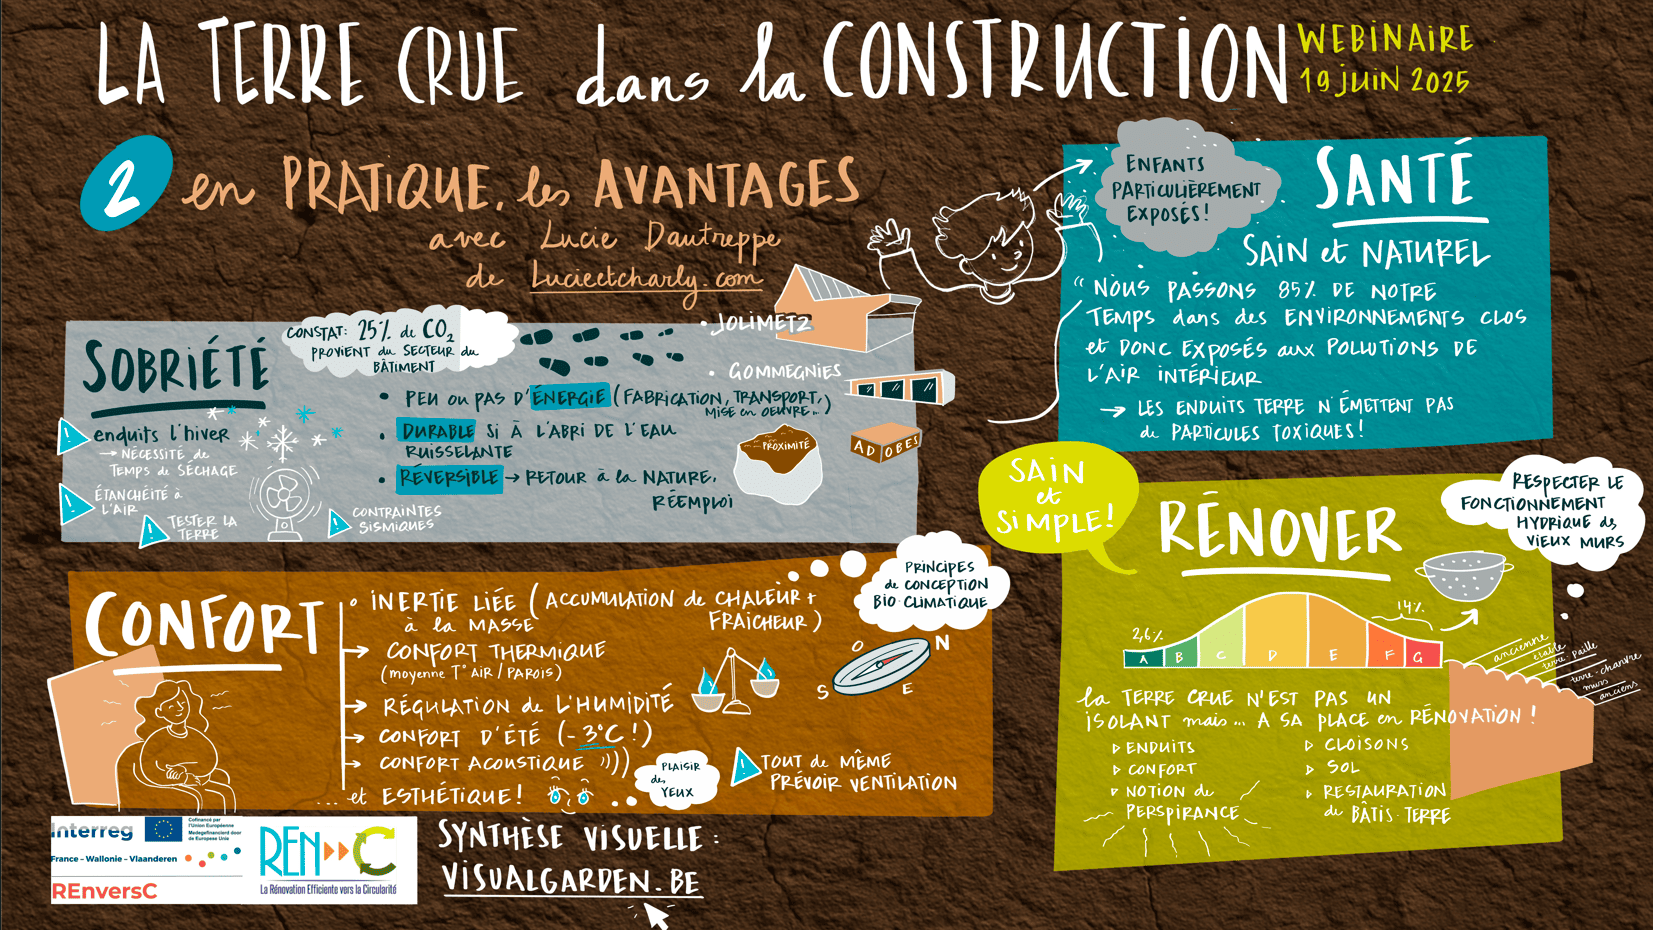 LA TERRE CRUE dans la CONSTRUCTION
WEBINAIRE
19 juin 2025
2 en PRATIQUE, les AVANTAGES
avec Lucie Dautreppe
de Lucieetcharly.com
SOBRIÉTÉ
CONSTAT: 25% de CO2
PROVIENT du SECTEUR du
BÂTIMENT
• JOLIMETZ
• GOMMEGNIES
• PEU ou PAS D'ÉNERGIE (FABRICATION, TRANSPORT,
MISE en OEUVRE...)
• DURABLE SI À L'ABRI DE L'EAU
RUISSELANTE
• RÉVERSIBLE → RETOUR à la NATURE,
RÉEMPLOI
PROXIMITÉ
ADOBES
! enduits l'hiver
→ NÉCESSITÉ de
TEMPS de SÉCHAGE
! ÉTANCHÉITÉ à
L'AIR
! TESTER LA
TERRE
! CONTRAINTES
SISMIQUES
CONFORT
• INERTIE LIÉE (ACCUMULATION de CHALEUR +
à la MASSE
FRAICHEUR)
→ CONFORT THERMIQUE
(moyenne T° AIR / PAROIS)
→ RÉGULATION de L'HUMIDITÉ
→ CONFORT D'ÉTÉ (-3°C!)
→ CONFORT ACOUSTIQUE ))))
... et ESTHÉTIQUE!
PLAISIR
des
YEUX
PRINCIPES
de CONCEPTION
BIO-CLIMATIQUE
O
N
S
E
! TOUT de MÊME
PRÉVOIR VENTILATION
SANTÉ
ENFANTS
PARTICULIÈREMENT
EXPOSÉS!
SAIN et NATUREL
“ NOUS PASSONS 85% DE NOTRE
TEMPS dans des ENVIRONNEMENTS CLOS
et DONC EXPOSÉS aux POLLUTIONS DE
L'AIR INTÉRIEUR
→ LES ENDUITS TERRE N'ÉMETTENT PAS
de PARTICULES TOXIQUES!
SAIN
et
SIMPLE!
RÉNOVER
RESPECTER LE
FONCTIONNEMENT
HYDRIQUE des
VIEUX MURS
2,6%
14%
A B C D E F G
ancienne
étable
terre-paille
terre-chanvre
murs
anciens
la TERRE CRUE N'EST PAS UN
ISOLANT mais... A SA PLACE en RÉNOVATION!
▷ ENDUITS
▷ CONFORT
▷ NOTION de
PERSPIRANCE
▷ CLOISONS
▷ SOL
▷ RESTAURATION
de BÂTIS-TERRE
Interreg
Cofinancé par
l'Union Européenne
Medegefinancierd door
de Europese Unie
France – Wallonie – Vlaanderen
REnversC
REN C
La Rénovation Efficiente vers la Circularité
SYNTHÈSE VISUELLE:
VISUALGARDEN.BE